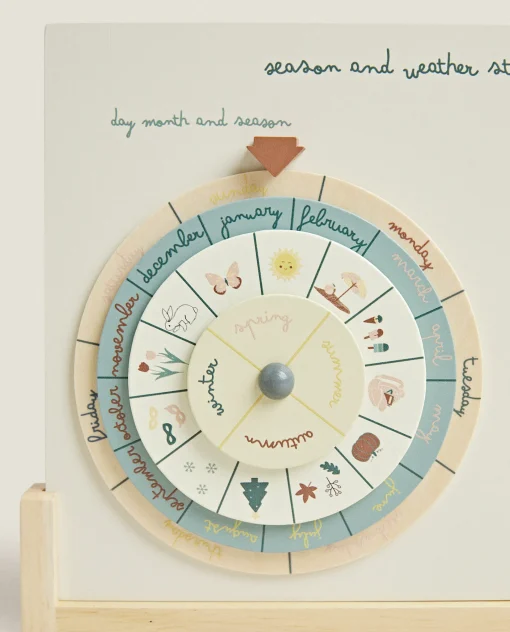 season and weather st
day month and season
sunday
monday
tuesday
thursday
friday
january
february
march
april
may
june
july
august
september
october
november
december
spring
summer
autumn
winter